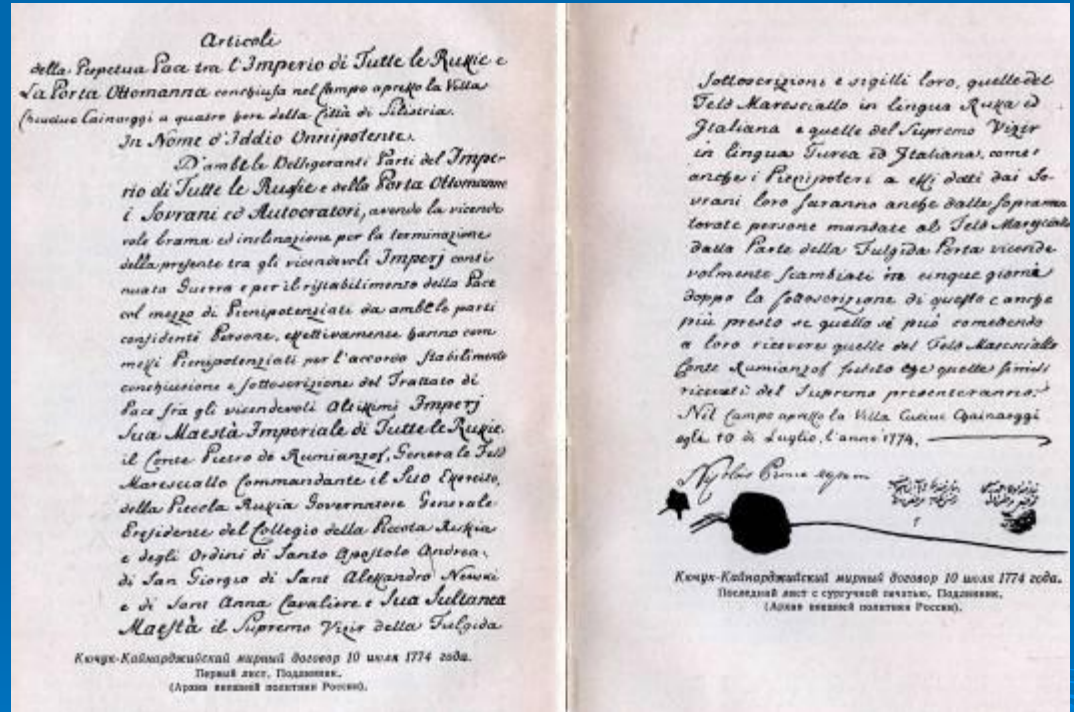 Articoli
della Perpetua Pace tra l'Imperio di Tutte le Russie e
La Porta Ottomanna conchiusa nel Campo apresso la Villa
Cainarggi a quatro hore della Città di Silistria.
In Nome d'Iddio Onnipotente.
D'ambe le Belligeranti Parti del Impe-
rio di Tutte le Russie e della Porta Ottomanna
i Sovrani ed Autocratori, avendo la vicende
vole brama ed inclinazione per la terminazione
della presente tra gli vicendevoli Imperj conti
nuata Guerra e per il ristabilimento della Pace
col mezzo di Plenipotenziati da ambe le parti
confidenti Persone, effettivamente hanno com
messi Plenipotenziati per l'accordo stabilimento
conchiusione e sottoscrizione del Trattato di
Pace fra gli vicendevoli Altissimi Imperj
Sua Maestà Imperiale di Tutte le Russie.
il Conte Pietro de Rumianzof, Generale Feld
Maresciallo Commandante il Suo Esercito,
della Piccola Russia Governatore Generale
Presidente del Collegio della Piccola Russia
e degli Ordini di Santo Apostolo Andrea,
di San Giorgio di Sant Alessandro Newski
e di Sant Anna Cavaliere e Sua Sultanea
Maestà il Supremo Vizir della Fulgida
Кючук-Кайнарджийский мирный договор 10 июля 1774 года.
Первый лист, Подлинник.
(Архив внешней политики России).
sottoscrizioni e sigilli loro, quelle del
Feld Maresciallo in lingua Russa ed
Italiana e quelle del Supremo Vizir
in lingua Turca ed Italiana, come
anche i Plenipoteri a essi dati dai So-
vrani loro saranno anche dalle sopramen
tovate persone mandate al Feld Maresciallo
dalla Parte della Fulgida Porta vicende
volmente scambiati in cinque giorni
doppo la sottoscrizione di questo e anche
più presto se quello si può
a loro ricevere quelle del Feld Maresciallo
Conte Rumianzof che quelle simili
ricevuti del Supremo presenteranno.
Nel Campo apresso la Villa Cainarggi
agli 10 di Luglio, l'anno 1774.
Кючук-Кайнарджийский мирный договор 10 июля 1774 года.
Последний лист с сургучной печатью, Подлинник.
(Архив внешней политики России).